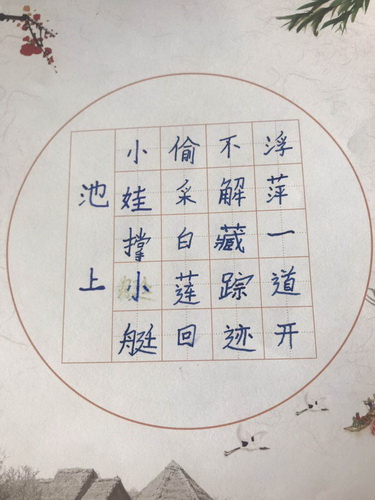 池上
小娃撑小艇
偷采白莲回
不解藏踪迹
浮萍一道开